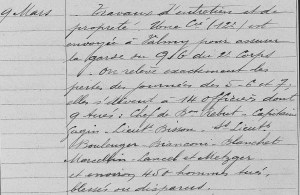 9 Mars Travaux d'entretien et de
propreté. Une Cie (122) est
envoyée à Valmy pour assurer
la garde du QG du 2e Corps
On relève exactement les
pertes des journées des 5-6 et 7;
elles s'élèvent à 14 officiers dont
9 tués: Chef de Bon Rebut - Capitaine
Lieut Bisson - St Lieuts
Boulenger Bianconi Blanchet
Marcellin - Lancel et Metzger
et environ 450 hommes tués,
blessés ou disparus.